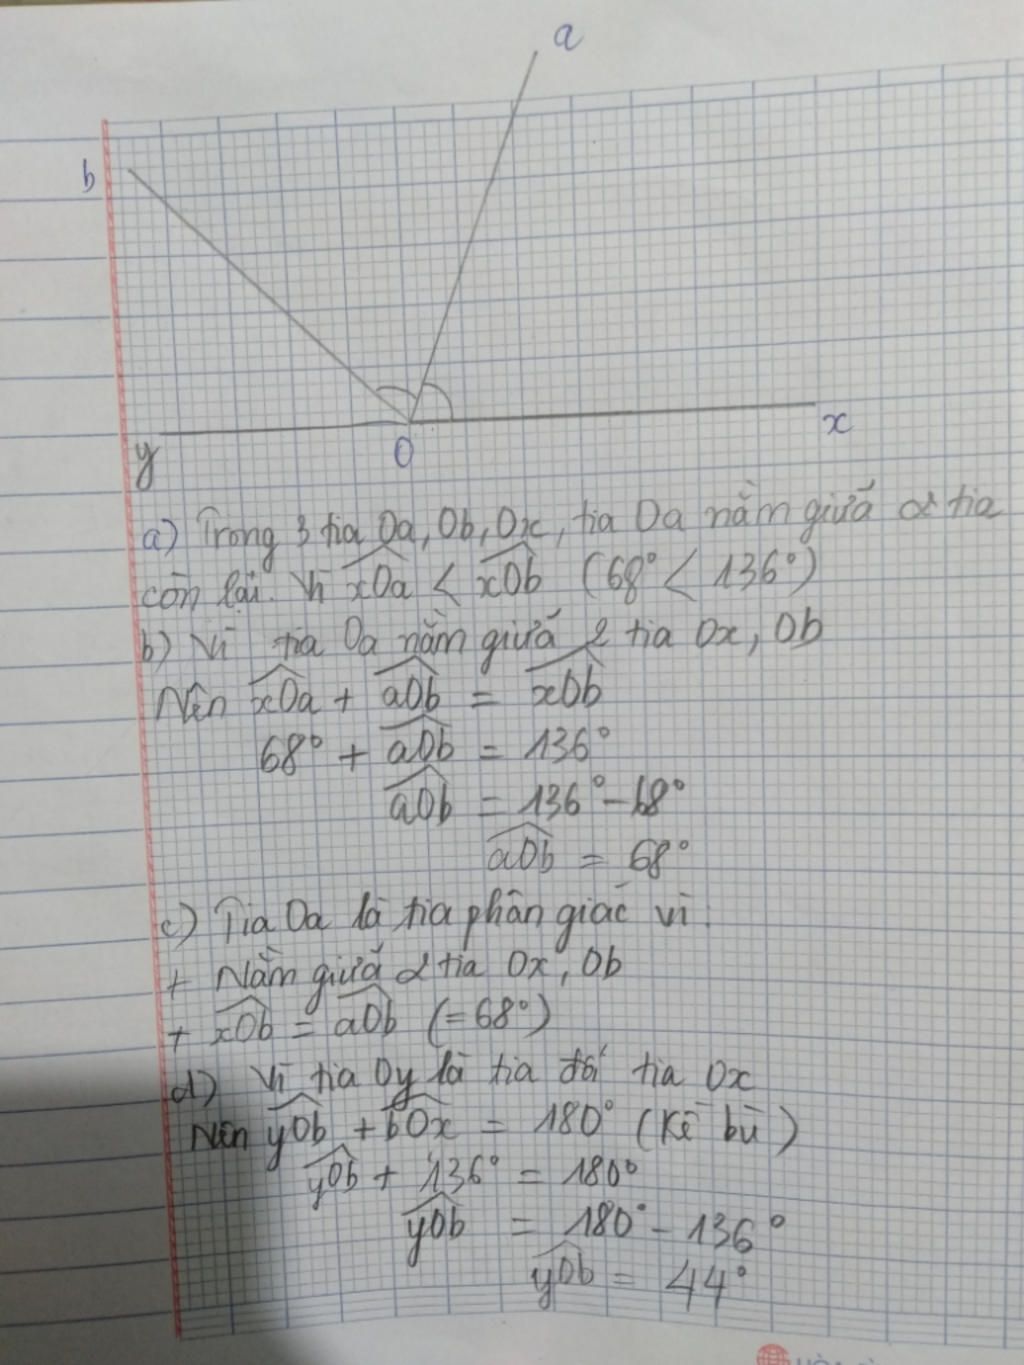 a
b
x
y
O
a) Trong 3 tia Oa, Ob, Ox, tia Oa nằm giữa 2 tia
còn lại. Vì xOa < xOb (68° < 136°)
b) Vì tia Oa nằm giữa 2 tia Ox, Ob
Nên xOa + aOb = xOb
68° + aOb = 136°
aOb = 136° - 68°
aOb = 68°
c) Tia Oa là tia phân giác vì:
+ Nằm giữa 2 tia Ox, Ob
+ xOb = aOb (=68°)
d) Vì tia Oy là tia đối tia Ox
Nên yOb + bOx = 180° (Kề bù)
yOb + 136° = 180°
yOb = 180° - 136°
yOb = 44°